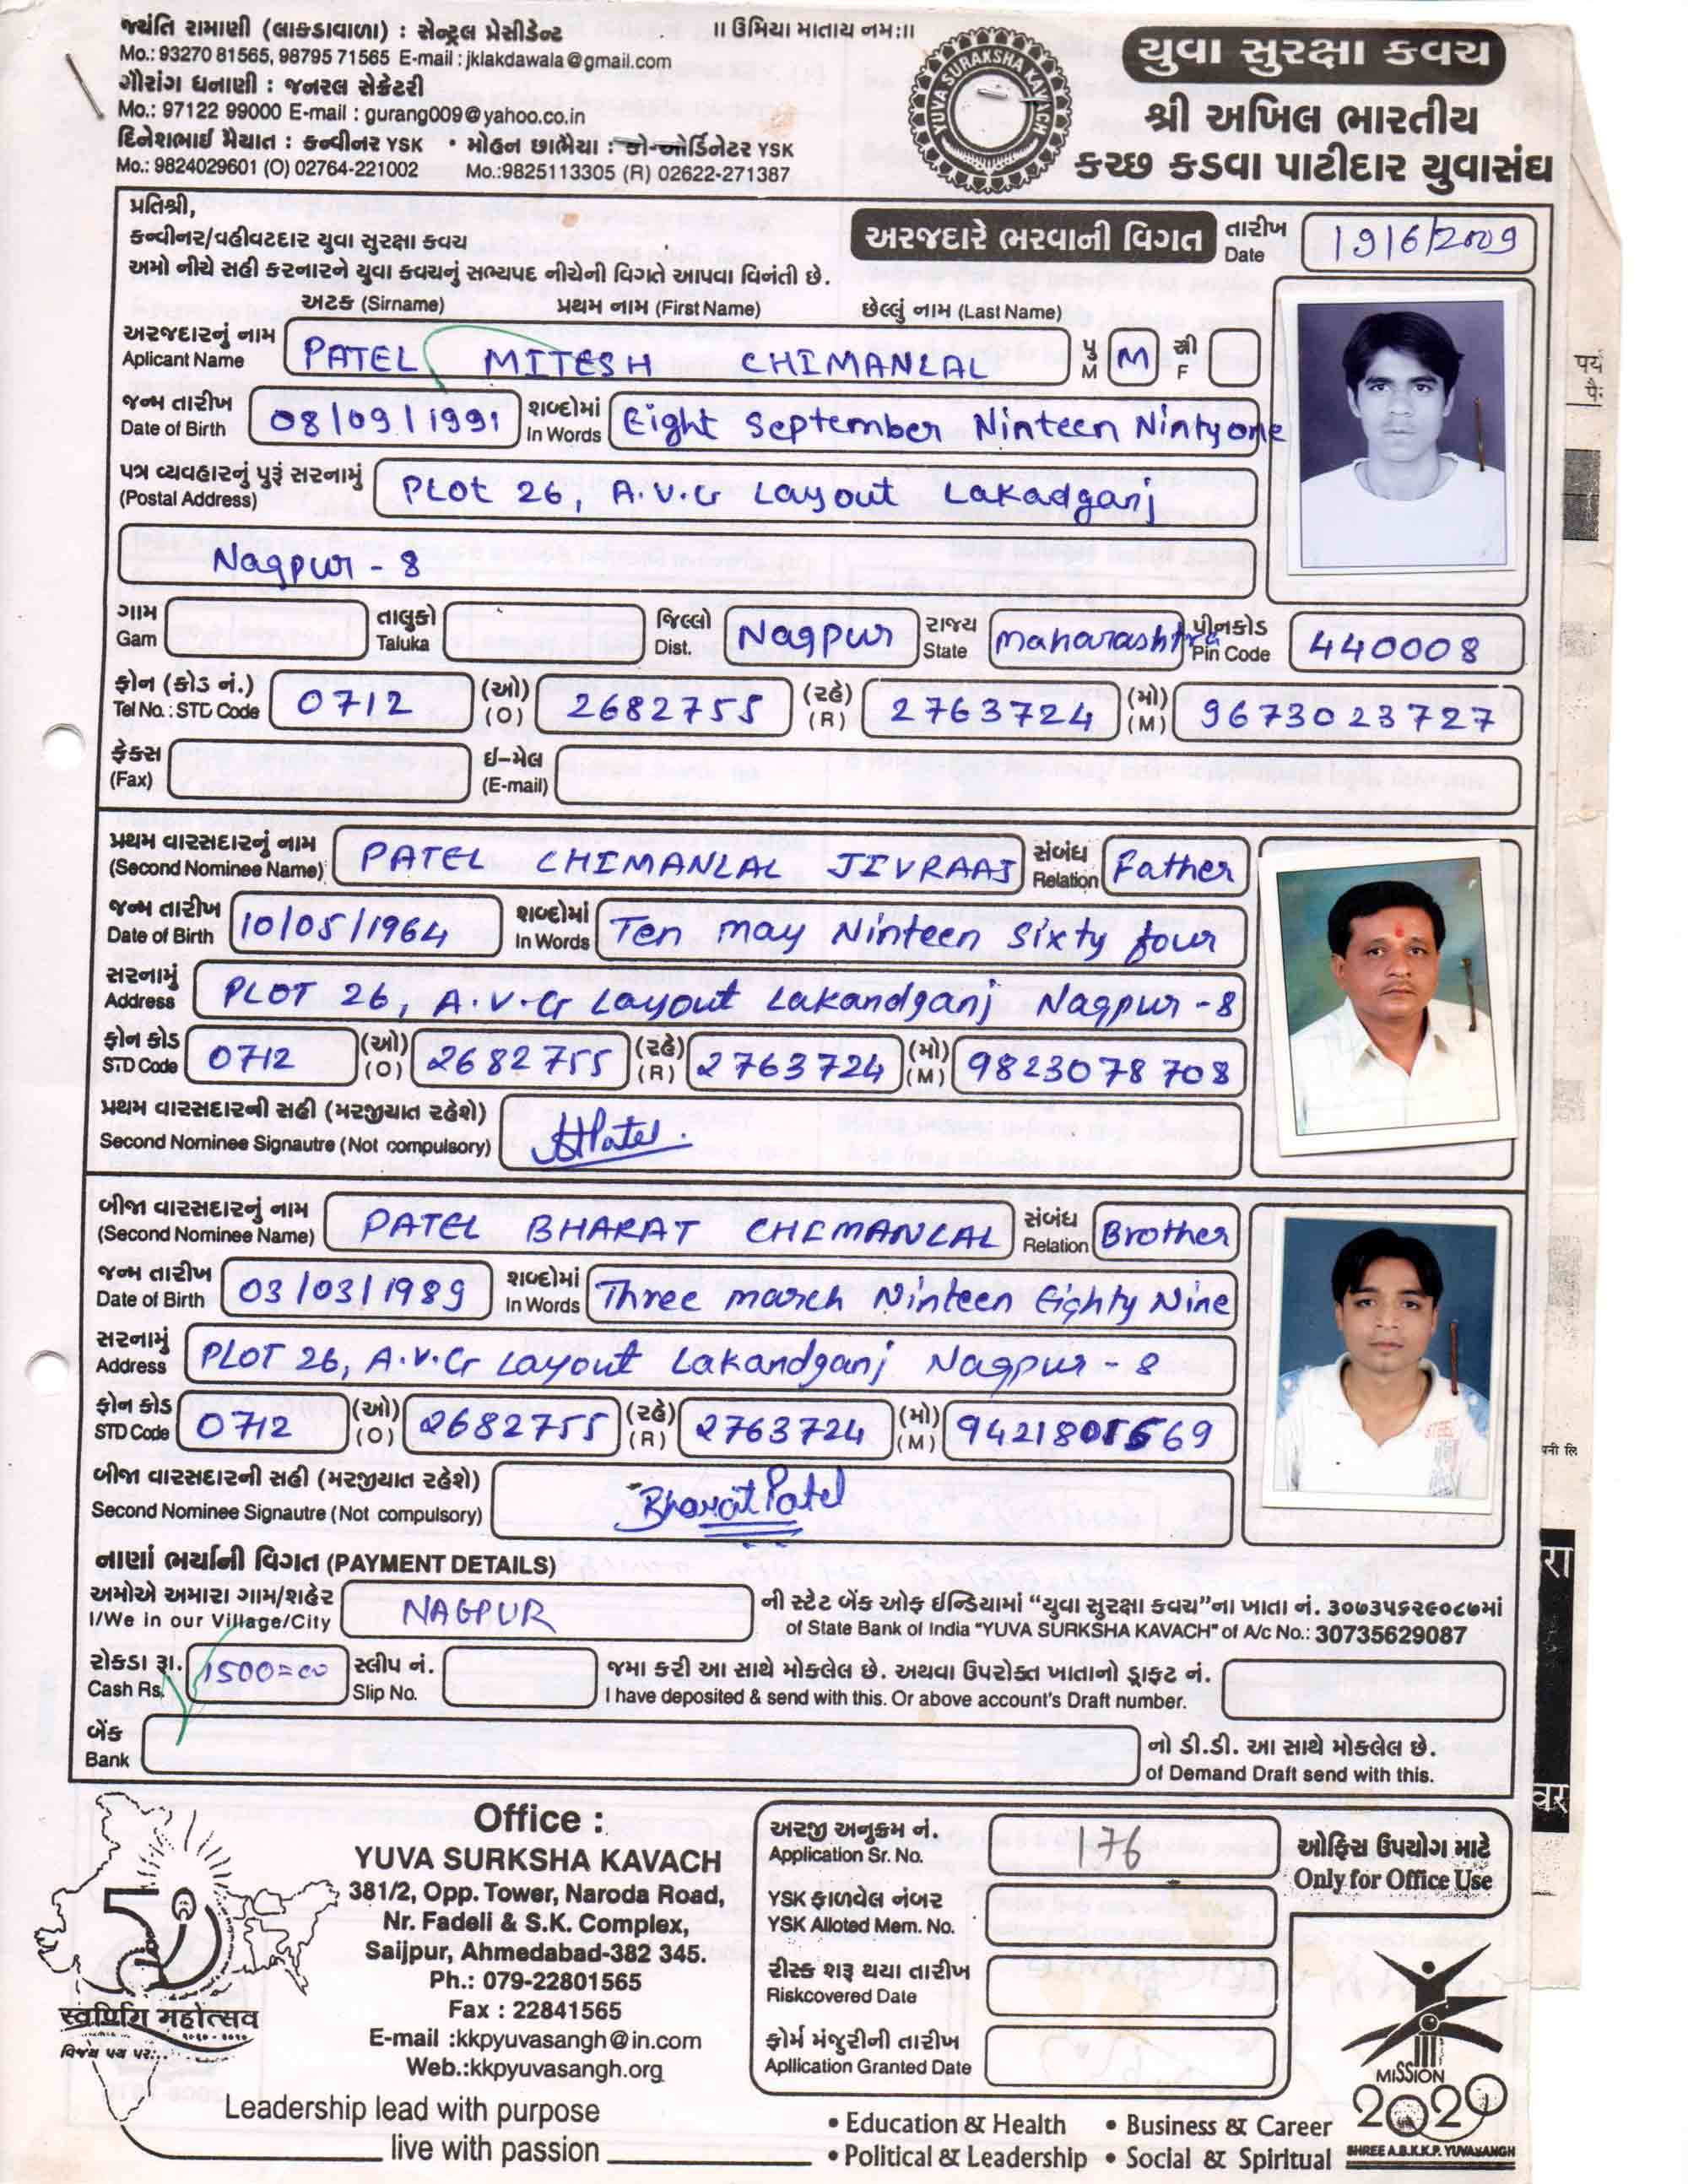 જયંતિ રામાણી (લાકડાવાળા) : સેન્ટ્રલ પ્રેસીડેન્ટ
Mo.: 93270 81565, 98795 71565 E-mail : jklakdawala@gmail.com
ગૌરાંગ ધનાણી : જનરલ સેક્રેટરી
Mo.: 97122 99000 E-mail : gurang009@yahoo.co.in
દિનેશભાઈ મૈયાત : કન્વીનર YSK • મોહન છાભૈયા : કો-ઓર્ડિનેટર YSK
Mo.: 9824029601 (O) 02764-221002 Mo.:9825113305 (R) 02622-271387
॥ ઉમિયા માતાય નમઃ॥
YUVA SURAKSHA KAVACH
યુવા સુરક્ષા કવચ
શ્રી અખિલ ભારતીય
કચ્છ કડવા પાટીદાર યુવાસંઘ
પ્રતિશ્રી,
કન્વીનર/વહીવટદાર યુવા સુરક્ષા કવચ
અરજદારે ભરવાની વિગત
તારીખ
Date 19/6/2009
અમો નીચે સહી કરનારને યુવા કવચનું સભ્યપદ નીચેની વિગતે આપવા વિનંતી છે.
અટક (Sirname) પ્રથમ નામ (First Name) છેલ્લું નામ (Last Name)
અરજદારનું નામ
Aplicant Name PATEL MITESH CHIMANLAL પુ M M સ્ત્રી F
જન્મ તારીખ
Date of Birth 08/09/1991 શબ્દોમાં In Words Eight September Ninteen Nintyone
પત્ર વ્યવહારનું પુરૂં સરનામું
(Postal Address) PLot 26, A.V.G Layout Lakadganj
Nagpur - 8
ગામ Gam તાલુકો Taluka જિલ્લો Dist. Nagpur રાજ્ય State maharashtra પીનકોડ Pin Code 440008
ફોન (કોડ નં.)
Tel No.: STD Code 0712 (ઓ) (O) 2682755 (રહે) (R) 2763724 (મો) (M) 9673023727
ફેક્સ
(Fax) ઈ-મેલ (E-mail)
પ્રથમ વારસદારનું નામ
(Second Nominee Name) PATEL CHIMANLAL JIVRAAJ સંબંધ Relation Father
જન્મ તારીખ
Date of Birth 10/05/1964 શબ્દોમાં In Words Ten may Ninteen Sixty four
સરનામું
Address PLOT 26, A.V.G Layout Lakandganj Nagpur -8
ફોન કોડ
STD Code 0712 (ઓ) (O) 2682755 (રહે) (R) 2763724 (મો) (M) 9823078708
પ્રથમ વારસદારની સહી (મરજીયાત રહેશે)
Second Nominee Signautre (Not compulsory)
બીજા વારસદારનું નામ
(Second Nominee Name) PATEL BHARAT CHIMANLAL સંબંધ Relation Brother
જન્મ તારીખ
Date of Birth 03/03/1989 શબ્દોમાં In Words Three march Ninteen Eighty Nine
સરનામું
Address PLOT 26, A.V.G Layout Lakandganj Nagpur - 8
ફોન કોડ
STD Code 0712 (ઓ) (O) 2682755 (રહે) (R) 2763724 (મો) (M)
બીજા વારસદારની સહી (મરજીયાત રહેશે)
Second Nominee Signautre (Not compulsory) Bharat Patel
નાણાં ભર્યાની વિગત (PAYMENT DETAILS)
અમોએ અમારા ગામ/શહેર
I/We in our Village/City NAGPUR
ની સ્ટેટ બેંક ઓફ ઈન્ડિયામાં “યુવા સુરક્ષા કવચ”ના ખાતા નં. ૩૦૭૩૫૬૨૯૦૮૭માં
of State Bank of India "YUVA SURKSHA KAVACH" of A/c No.: 30735629087
રોકડા રૂા.
Cash Rs. 1500=00 સ્લીપ નં. Slip No.
જમા કરી આ સાથે મોકલેલ છે. અથવા ઉપરોક્ત ખાતાનો ડ્રાફ્ટ નં.
I have deposited & send with this. Or above account's Draft number.
બેંક
Bank
નો ડી.ડી. આ સાથે મોકલેલ છે.
of Demand Draft send with this.
Office :
YUVA SURKSHA KAVACH
381/2, Opp. Tower, Naroda Road,
Nr. Fadeli & S.K. Complex,
Saijpur, Ahmedabad-382 345.
Ph.: 079-22801565
Fax : 22841565
E-mail :kkpyuvasangh@in.com
Web.:kkpyuvasangh.org
અરજી અનુક્રમ નં.
Application Sr. No. 176
ઓફિસ ઉપયોગ માટે
Only for Office Use
YSK ફાળવેલ નંબર
YSK Alloted Mem. No.
રીસ્ક શરૂ થયા તારીખ
Riskcovered Date
ફોર્મ મંજુરીની તારીખ
Apllication Granted Date
50
स्वर्णिम महोत्सव
Leadership lead with purpose
live with passion
• Education & Health • Business & Career
• Political & Leadership • Social & Spiritual
MISSION
2020
SHREE A.B.K.K.P. YUVASANGH